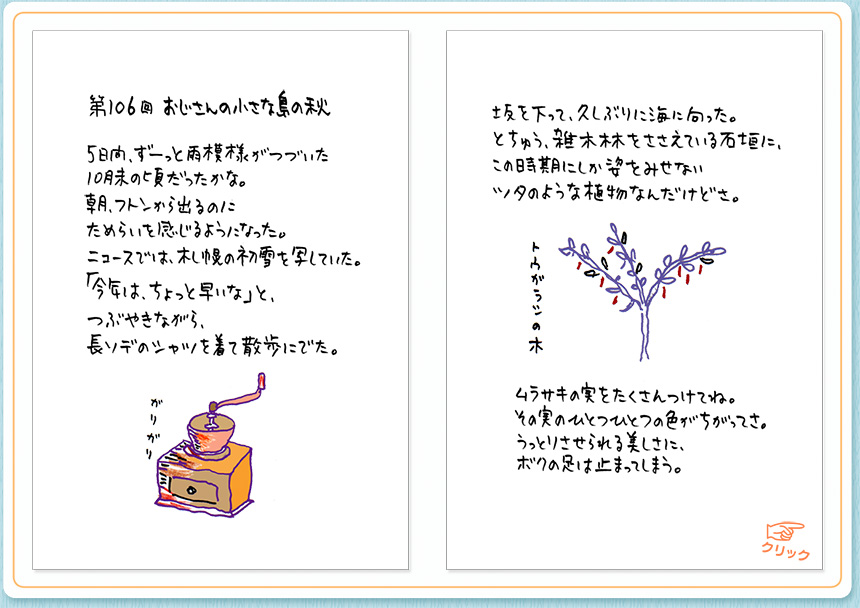 第106回 おじさんの小さな島の秋
5日間、ずーっと雨模様がつづいた
10月末の頃だったかな。
朝、フトンから出るのに
ためらいを感じるようになった。
ニュースでは、札幌の初雪を写していた。
「今年は、ちょっと早いな」と、
つぶやきながら、
長ソデのシャツを着て散歩にでた。
がりがり
坂を下って、久しぶりに海に向った。
とちゅう、雑木林をささえている石垣に、
この時期にしか姿をみせない
ツタのような植物なんだけどさ。
トウガラシの木
ムラサキの実をたくさんつけてね。
その実のひとつひとつの色がちがってさ。
うっとりさせられる美しさに、
ボクの足は止まってしまう。
クリック